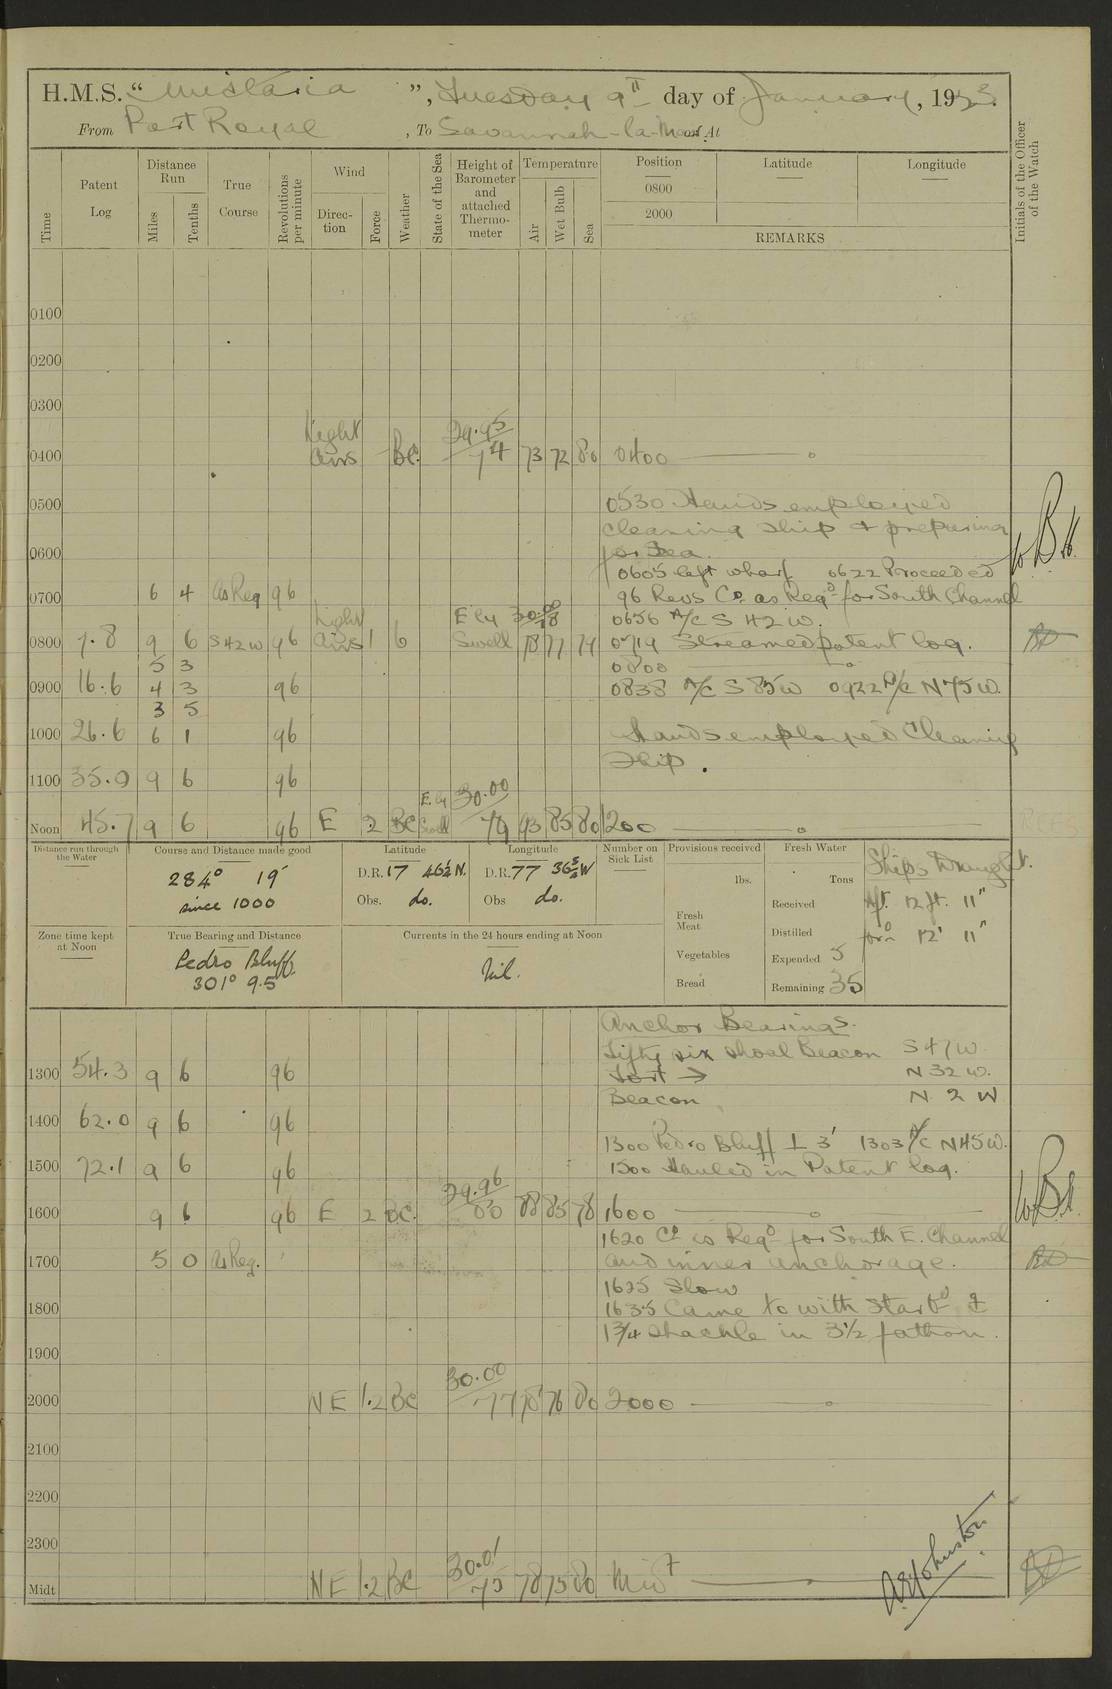 H.M.S. “Wistaria”, Tuesday 9th day of January, 1923.
From Port Royal, To Savannah-la-Mar or At
Time
Patent Log
Distance Run
Miles
Tenths
True Course
Revolutions per minute
Wind
Direction
Force
Weather
State of the Sea
Height of Barometer and attached Thermometer
Temperature
Air
Wet Bulb
Sea
Position
Latitude
Longitude
0800
2000
REMARKS
Initials of the Officer of the Watch
0100
0200
0300
0400 Light airs BC. 29.95 74 73 72 80 0400
0500
0530 Hands employed
cleaning ship & preparing
for Sea.
0600
0605 left wharf 0622 Proceeded
0700 6 4 as Req 96 96 Revs Co. as Reqd for South Channel
0656 A/C S 42 W.
0800 7.8 9 6 S 42 W 96 Light airs 1 b E'ly Swell 30.00 78 78 77 79 0719 Streamed patent log.
5 3 0800
0900 16.6 4 3 96 0838 A/C S 85 W 0922 A/C N 75 W.
3 5
1000 26.6 6 1 96 Hands employed Cleaning
Ship.
1100 35.9 9 6 96
Noon 45.7 9 6 96 E 2 BC E.ly Swell 30.00 79 93 85 80 1200
Distance run through the Water
Course and Distance made good
284° 19'
since 1000
Latitude
D.R. 17 46½ N.
Obs. do.
Longitude
D.R. 77 36 W
Obs do.
Number on Sick List
Provisions received
lbs.
Fresh Meat
Vegetables
Bread
Fresh Water
Tons
Received
Distilled
Expended 5
Remaining 35
Ships Draught.
Aft. 12 ft. 11"
ford 12' 11"
Zone time kept at Noon
True Bearing and Distance
Pedro Bluff.
301° 9.5
Currents in the 24 hours ending at Noon
Nil.
Anchor Bearings.
Fifty six shoal Beacon S 47 W
1300 54.3 9 6 96 Fort → N 32 W.
Beacon N 2 W
1400 62.0 9 6 96
1300 Pedro Bluff ⊥ 3' 1303 A/C N 45 W.
1500 72.1 9 6 96 1500 Hauled in Patent log.
1600 9 6 96 E 2 BC. 29.96 80 88 85 78 1600
1620 Co as Reqd for South E. Channel
1700 5 0 as Req. and inner anchorage.
1625 Slow
1800 1635 Came to with Starbd ⚓
1¾ shackle in 3½ fathom.
1900
2000 NE 1.2 BC 30.00 77 78 76 80 2000
2100
2200
2300
Midt NE 1.2 BC 30.01 75 78 75 80 Midt
A.W. Johnston